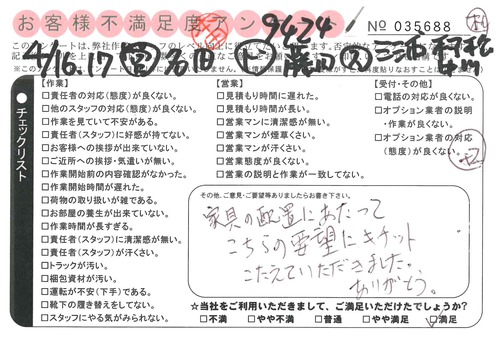 お客様不満足度アン
9424
No 035688
札
4/16.17
【作業】
□責任者の対応(態度)が良くない。
□他のスタッフの対応(態度)が良くない。
□作業を見ていて不安がある。
□責任者(スタッフ)に好感が持てない。
□お客様への挨拶が出来ていない。
□ご近所への挨拶・気遣いが無い。
□作業開始前の内容確認がなかった。
□作業開始時間が遅れた。
□荷物の取り扱いが雑である。
□お部屋の養生が出来ていない。
□作業時間が長すぎる。
□責任者(スタッフ)に清潔感が無い。
□責任者(スタッフ)が汗くさい。
□トラックが汚い。
□梱包資材が汚い。
□運転が不安(下手)である。
□靴下の履き替えをしてない。
□スタッフにやる気がみられない。
チェックリスト
【営業】
□見積もり時間に遅れた。
□見積もり時間が長い。
□営業マンに清潔感が無い。
□営業マンが煙草くさい。
□営業マンが汗くさい。
□営業態度が良くない。
□営業の説明と作業が一致してない。
【受付・その他】
□電話の対応が良くない。
□オプション業者の説明
・作業が良くない。
□オプション業者の対応
(態度)が良くない。
その他、ご意見・ご要望等ありましたらお書き下さい。
家具の配置にあたって
こちらの要望にキチット
こたえていただきました。
ありがとう。
☆当社をご利用いただきまして、ご満足いただけたでしょうか?
□不満 □やや不満 □普通 □やや満足 ☑満足